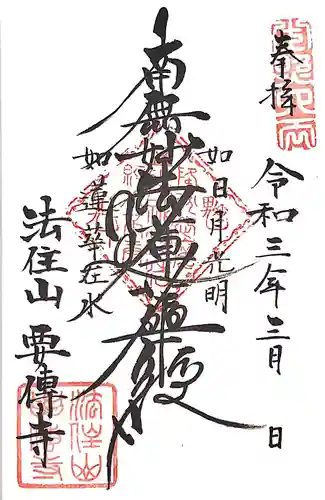 奉拝
令和三年三月 日
如日月光明
南無妙法蓮華経
如蓮華在水
法住山 要傳寺
法住山